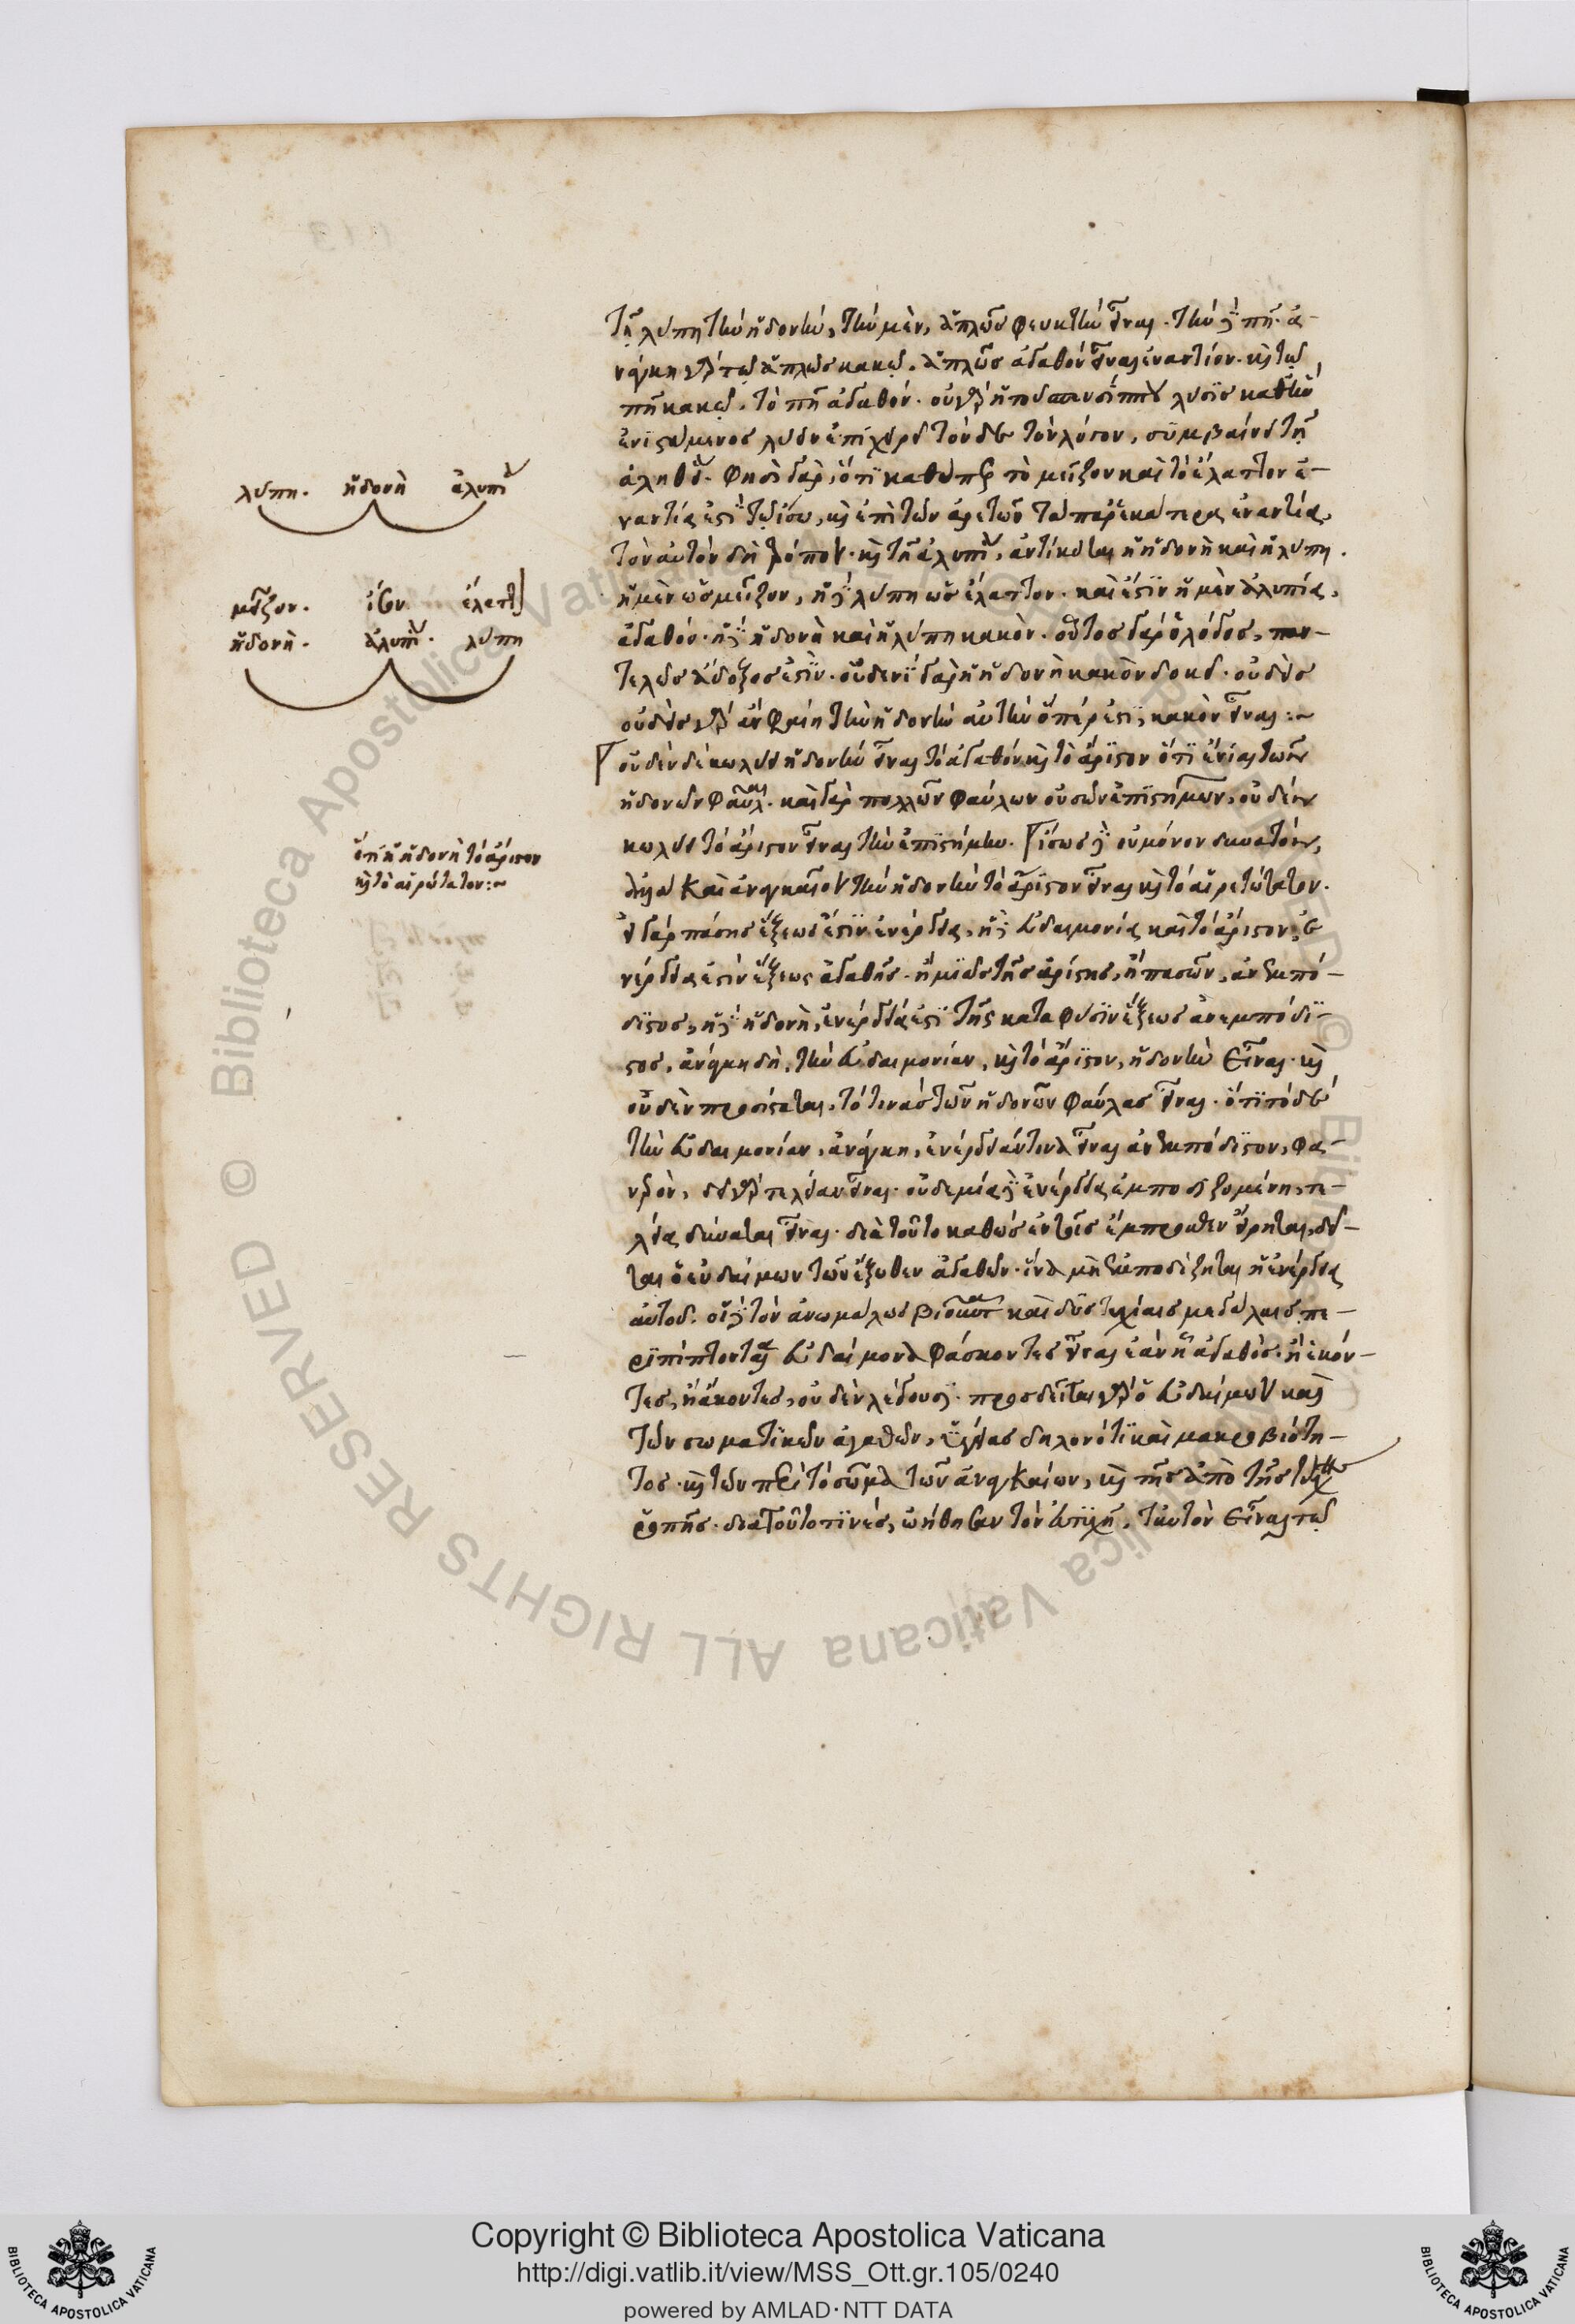 τῇ λύπῃ τὴν ἡδονήν, τὴν μὲν, ἁπλῶς φευκτὴν εἶναι. τὴν δὲ πῇ. ἀ-
νάγκη γὰρ τῷ ἁπλῶς κακῷ, ἁπλῶς ἀγαθὸν εἶναι ἐναντίον. καὶ τῷ
πῇ κακῷ, τὸ πῇ ἀγαθόν. οὐ γὰρ ἡ τοῦ σπευσίππου λύσις καθ' ἣν
ἐνιστάμενος λύειν ἐπιχειρεῖ τόνδε τὸν λόγον, συμβαίνει τῇ
ἀληθείᾳ. φησὶ γὰρ, ὅτι καθάπερ τὸ μεῖζον καὶ τὸ ἔλαττον ἐ-
ναντία ἐστὶ τῷ ἴσῳ, καὶ ἐπὶ τῶν ἀρετῶν τὰ παρ' ἑκάτερα ἐναντία,
τὸν αὐτὸν δὴ τρόπον. καὶ τῇ ἀλυπίᾳ, ἀντίκειται ἡ ἡδονὴ καὶ ἡ λύπη.
ἡ μὲν ὡς μεῖζον, ἡ δὲ λύπη ὡς ἔλαττον. καὶ ἔστιν ἡ μὲν ἀλυπία,
ἀγαθόν. ἡ δὲ ἡδονὴ καὶ ἡ λύπη κακόν. οὗτος γὰρ ὁ λόγος, παν-
τελῶς ἄδοξος ἐστὶν. οὐδενὶ γὰρ ἡ ἡδονὴ κακὸν δοκεῖ. οὐδεὶς
οὐδεὶς γὰρ ἂν φαίη τὴν ἡδονὴν αὐτὴν ὅπερ ἐστὶ, κακὸν εἶναι:~
οὐδὲν δὲ κωλύει ἡδονὴν εἶναι τὸ ἀγαθὸν καὶ τὸ ἄριστον ὅτι ἔνιαι τῶν
ἡδονῶν φαῦλαι. καὶ γὰρ πολλῶν φαύλων οὐσῶν ἐπιστημῶν, οὐδὲν
κωλύει τὸ ἄριστον εἶναι τὴν ἐπιστήμην. ἴσως δὲ οὐ μόνον δυνατὸν,
ἀλλὰ καὶ ἀναγκαῖον τὴν ἡδονὴν τὸ ἄριστον εἶναι καὶ τὸ αἱρετώτατον.
εἰ γὰρ πάσης ἕξεως ἐστὶν ἐνέργεια, ἡ δὲ εὐδαιμονία καὶ τὸ ἄριστον, ἐ-
νέργεια ἐστὶν ἕξεως ἀγαθῆς. ἢ μιᾶς τῆς ἀρίστης, ἢ πασῶν, ἀνεμπό-
διστος, ἡ δὲ ἡδονὴ, ἐνέργειά ἐστι τῆς κατὰ φύσιν ἕξεως ἀνεμπόδι-
στος, ἀνάγκη δὴ, τὴν εὐδαιμονίαν, καὶ τὸ ἄριστον, ἡδονὴν εἶναι. καὶ
οὐδὲν προσίσταται, τό τινας τῶν ἡδονῶν φαύλας εἶναι. ὅτι τόδε
τὴν εὐδαιμονίαν, ἀνάγκη, ἐνέργειάν τινα εἶναι ἀνεμπόδιστον, φα-
νερὸν, δεῖ γὰρ τελείαν εἶναι. οὐδεμία δὲ ἐνέργεια ἐμποδιζομένη, τε-
λεία δύναται εἶναι. διὰ τοῦτο καθὼς ἐν τοῖς ἔμπροσθεν εἴρηται, δεῖ-
ται ὁ εὐδαίμων τῶν ἔξωθεν ἀγαθῶν. ἵνα μὴ ἐμποδίζηται ἡ ἐνέργεια
αὐτοῦ. οἱ δὲ τὸν ἀνωμάλως βιοῦντα καὶ δυστυχίαις μεγάλαις πε-
ριπίπτοντα, εὐδαίμονα φάσκοντες εἶναι ἐὰν ᾖ ἀγαθὸς. ἢ ἑκόν-
τες, ἢ ἄκοντες, οὐδὲν λέγουσι. προσδεῖται γὰρ ὁ εὐδαίμων καὶ
τῶν σωματικῶν ἀγαθῶν, ὑγείας δηλονότι καὶ μακροβιότη-
τος. καὶ τῶν περὶ τὸ σῶμα τῶν ἀναγκαίων, καὶ τῆς ἀπὸ τῆς τύχης
ῥοπῆς. διὰ τοῦτο τινὲς, ᾠήθησαν τὸν εὐτυχῆ, ταυτὸν εἶναι τῷ
λύπη. ἡδονὴ ἀλυπία
μεῖζον. ἴσον ἔλαττον
ἡδονὴ. ἀλυπία. λύπη
ὅτι ἡ ἡδονὴ τὸ ἄριστον
καὶ τὸ αἱρετώτατον:~
© Biblioteca Apostolica Vaticana ALL RIGHTS RESERVED
Copyright © Biblioteca Apostolica Vaticana
http://digi.vatlib.it/view/MSS_Ott.gr.105/0240
powered by AMLAD·NTT DATA
BIBLIOTECA APOSTOLICA VATICANA
BIBLIOTECA APOSTOLICA VATICANA